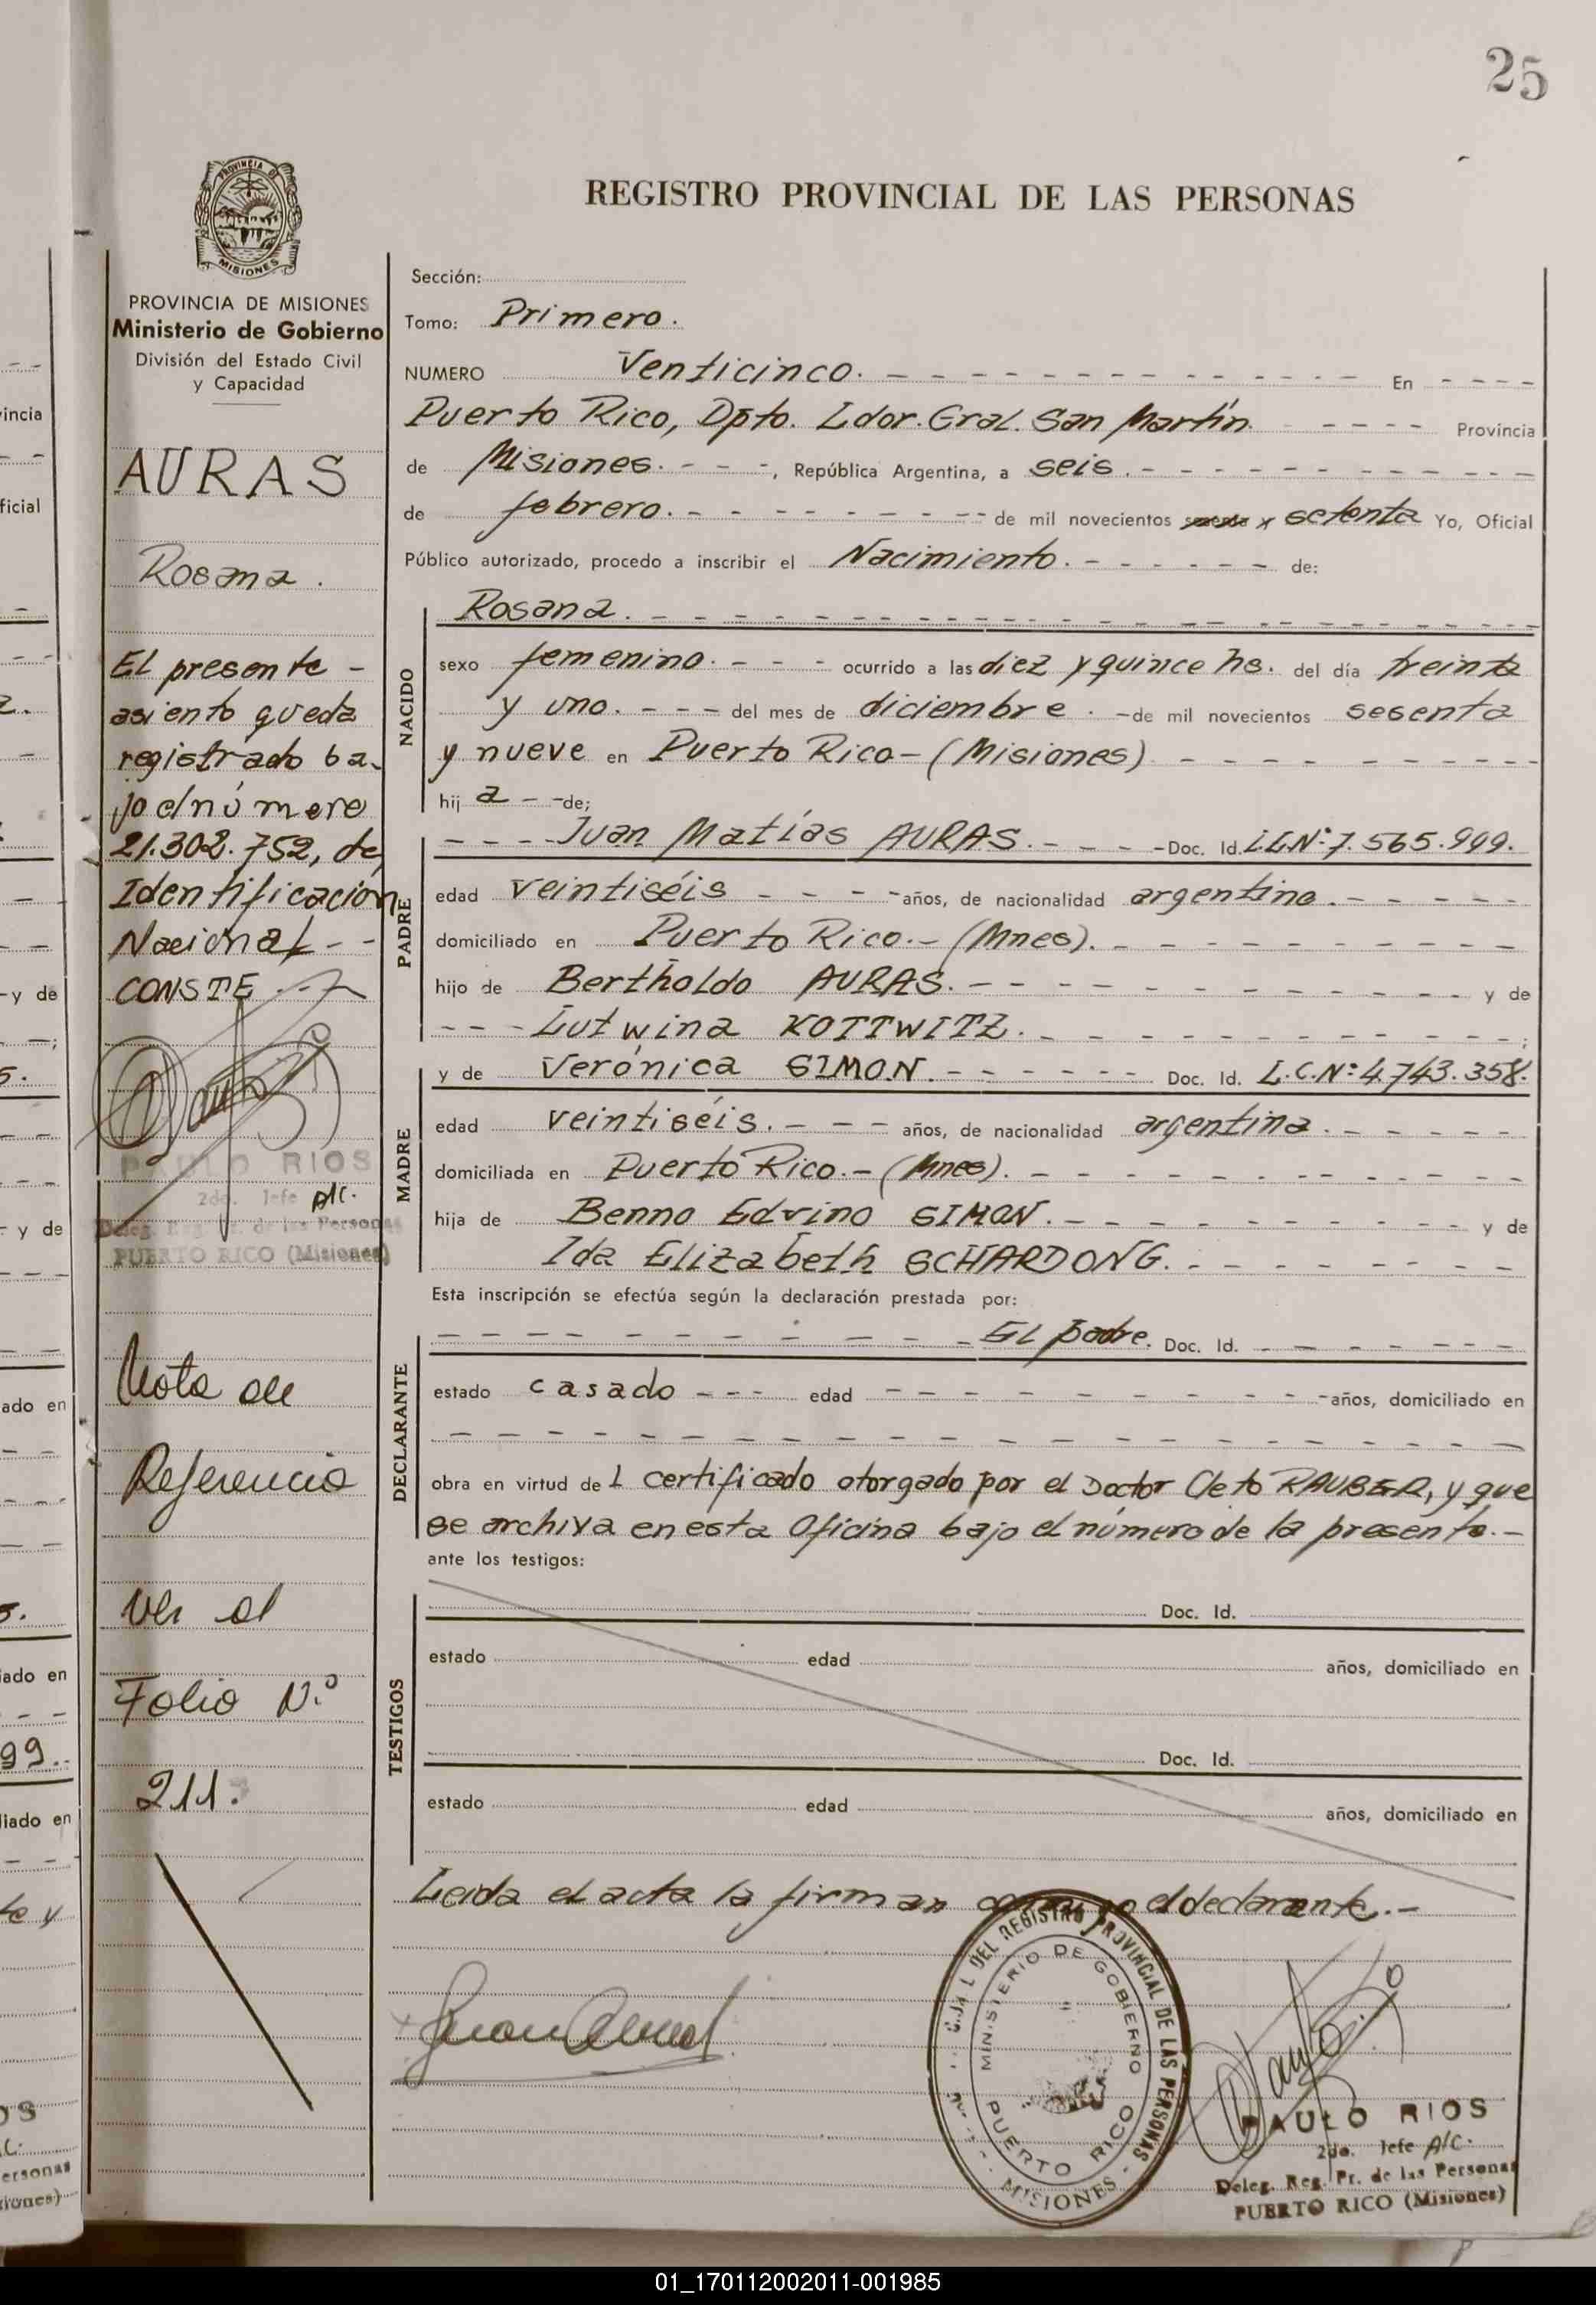 25
REGISTRO PROVINCIAL DE LAS PERSONAS
PROVINCIA DE
MISIONES
PROVINCIA DE MISIONES
Ministerio de Gobierno
División del Estado Civil
y Capacidad
AURAS
Rosana.
El presente -
asiento queda
registrado ba-
jo el número
21.302.752, de
Identificación
Nacional - -
CONSTE
PAULO RIOS
2do. Jefe A/C.
Deleg. Reg. Pr. de las Personas
PUERTO RICO (Misiones)
Nota de
Referencia
ver al
Folio N.º
211.
Sección:
Tomo: Primero.
NUMERO Venticinco. - - - - - - - - - - - - - - En - - - -
Puerto Rico, Dpto. Ldor. Gral. San Martín. - - - - Provincia
de Misiones. - - -, República Argentina, a seis. - - - - - - - - - - - -
de febrero. - - - - - - - - - de mil novecientos y setenta Yo, Oficial
Público autorizado, procedo a inscribir el Nacimiento. - - - - - - - de:
NACIDO
Rosana. - - - - - - - - - - - - - - - - - - - - - -
sexo femenino. - - - ocurrido a las diez y quince hs. del día treinta
y uno. - - - del mes de diciembre. - de mil novecientos sesenta
y nueve en Puerto Rico - (Misiones) - - - - - - - - - - -
hij a - - de;
PADRE
- - - - Juan Matías AURAS. - - - - Doc. Id. L.E.Nº: 7.565.999.
edad veintiséis - - - - años, de nacionalidad argentina. - - - - -
domiciliado en Puerto Rico. - (Mnes). - - - - - - - - - - -
hijo de Bertholdo AURAS. - - - - - - - - - - - - - y de
- - - Lutwina KOTTWITZ. - - - - - - - - - - - - - - ;
MADRE
y de Verónica SIMON. - - - - - - Doc. Id. L.C.Nº: 4.743.358.
edad veintiséis. - - - años, de nacionalidad argentina. - - - - - -
domiciliada en Puerto Rico. - (Mnes). - - - - - - - - - - - - -
hija de Benno Edvino SIMON. - - - - - - - - - - - y de
Ida Elizabeth SCHARDONG. - - - - - - - - - -
Esta inscripción se efectúa según la declaración prestada por:
DECLARANTE
- - - - - - - - - - - - El padre. Doc. Id. - - - - - - -
estado casado - - - edad - - - - - - - - - - - años, domiciliado en
- - - - - - - - - - - - - - - - - - - - - - - -
obra en virtud de l certificado otorgado por el Doctor Cleto RAUBER, y que
se archiva en esta Oficina bajo el número de la presente. -
ante los testigos:
TESTIGOS
Doc. Id.
estado edad años, domiciliado en
Doc. Id.
estado edad años, domiciliado en
Leida el acta la firman conmigo el declarante. -
DEL REGISTRO PROVINCIAL DE LAS PERSONAS
MINISTERIO DE GOBIERNO
PUERTO RICO
- MISIONES -
PAULO RIOS
2do. Jefe A/C.
Deleg. Reg. Pr. de las Personas
PUERTO RICO (Misiones)
01_170112002011-001985